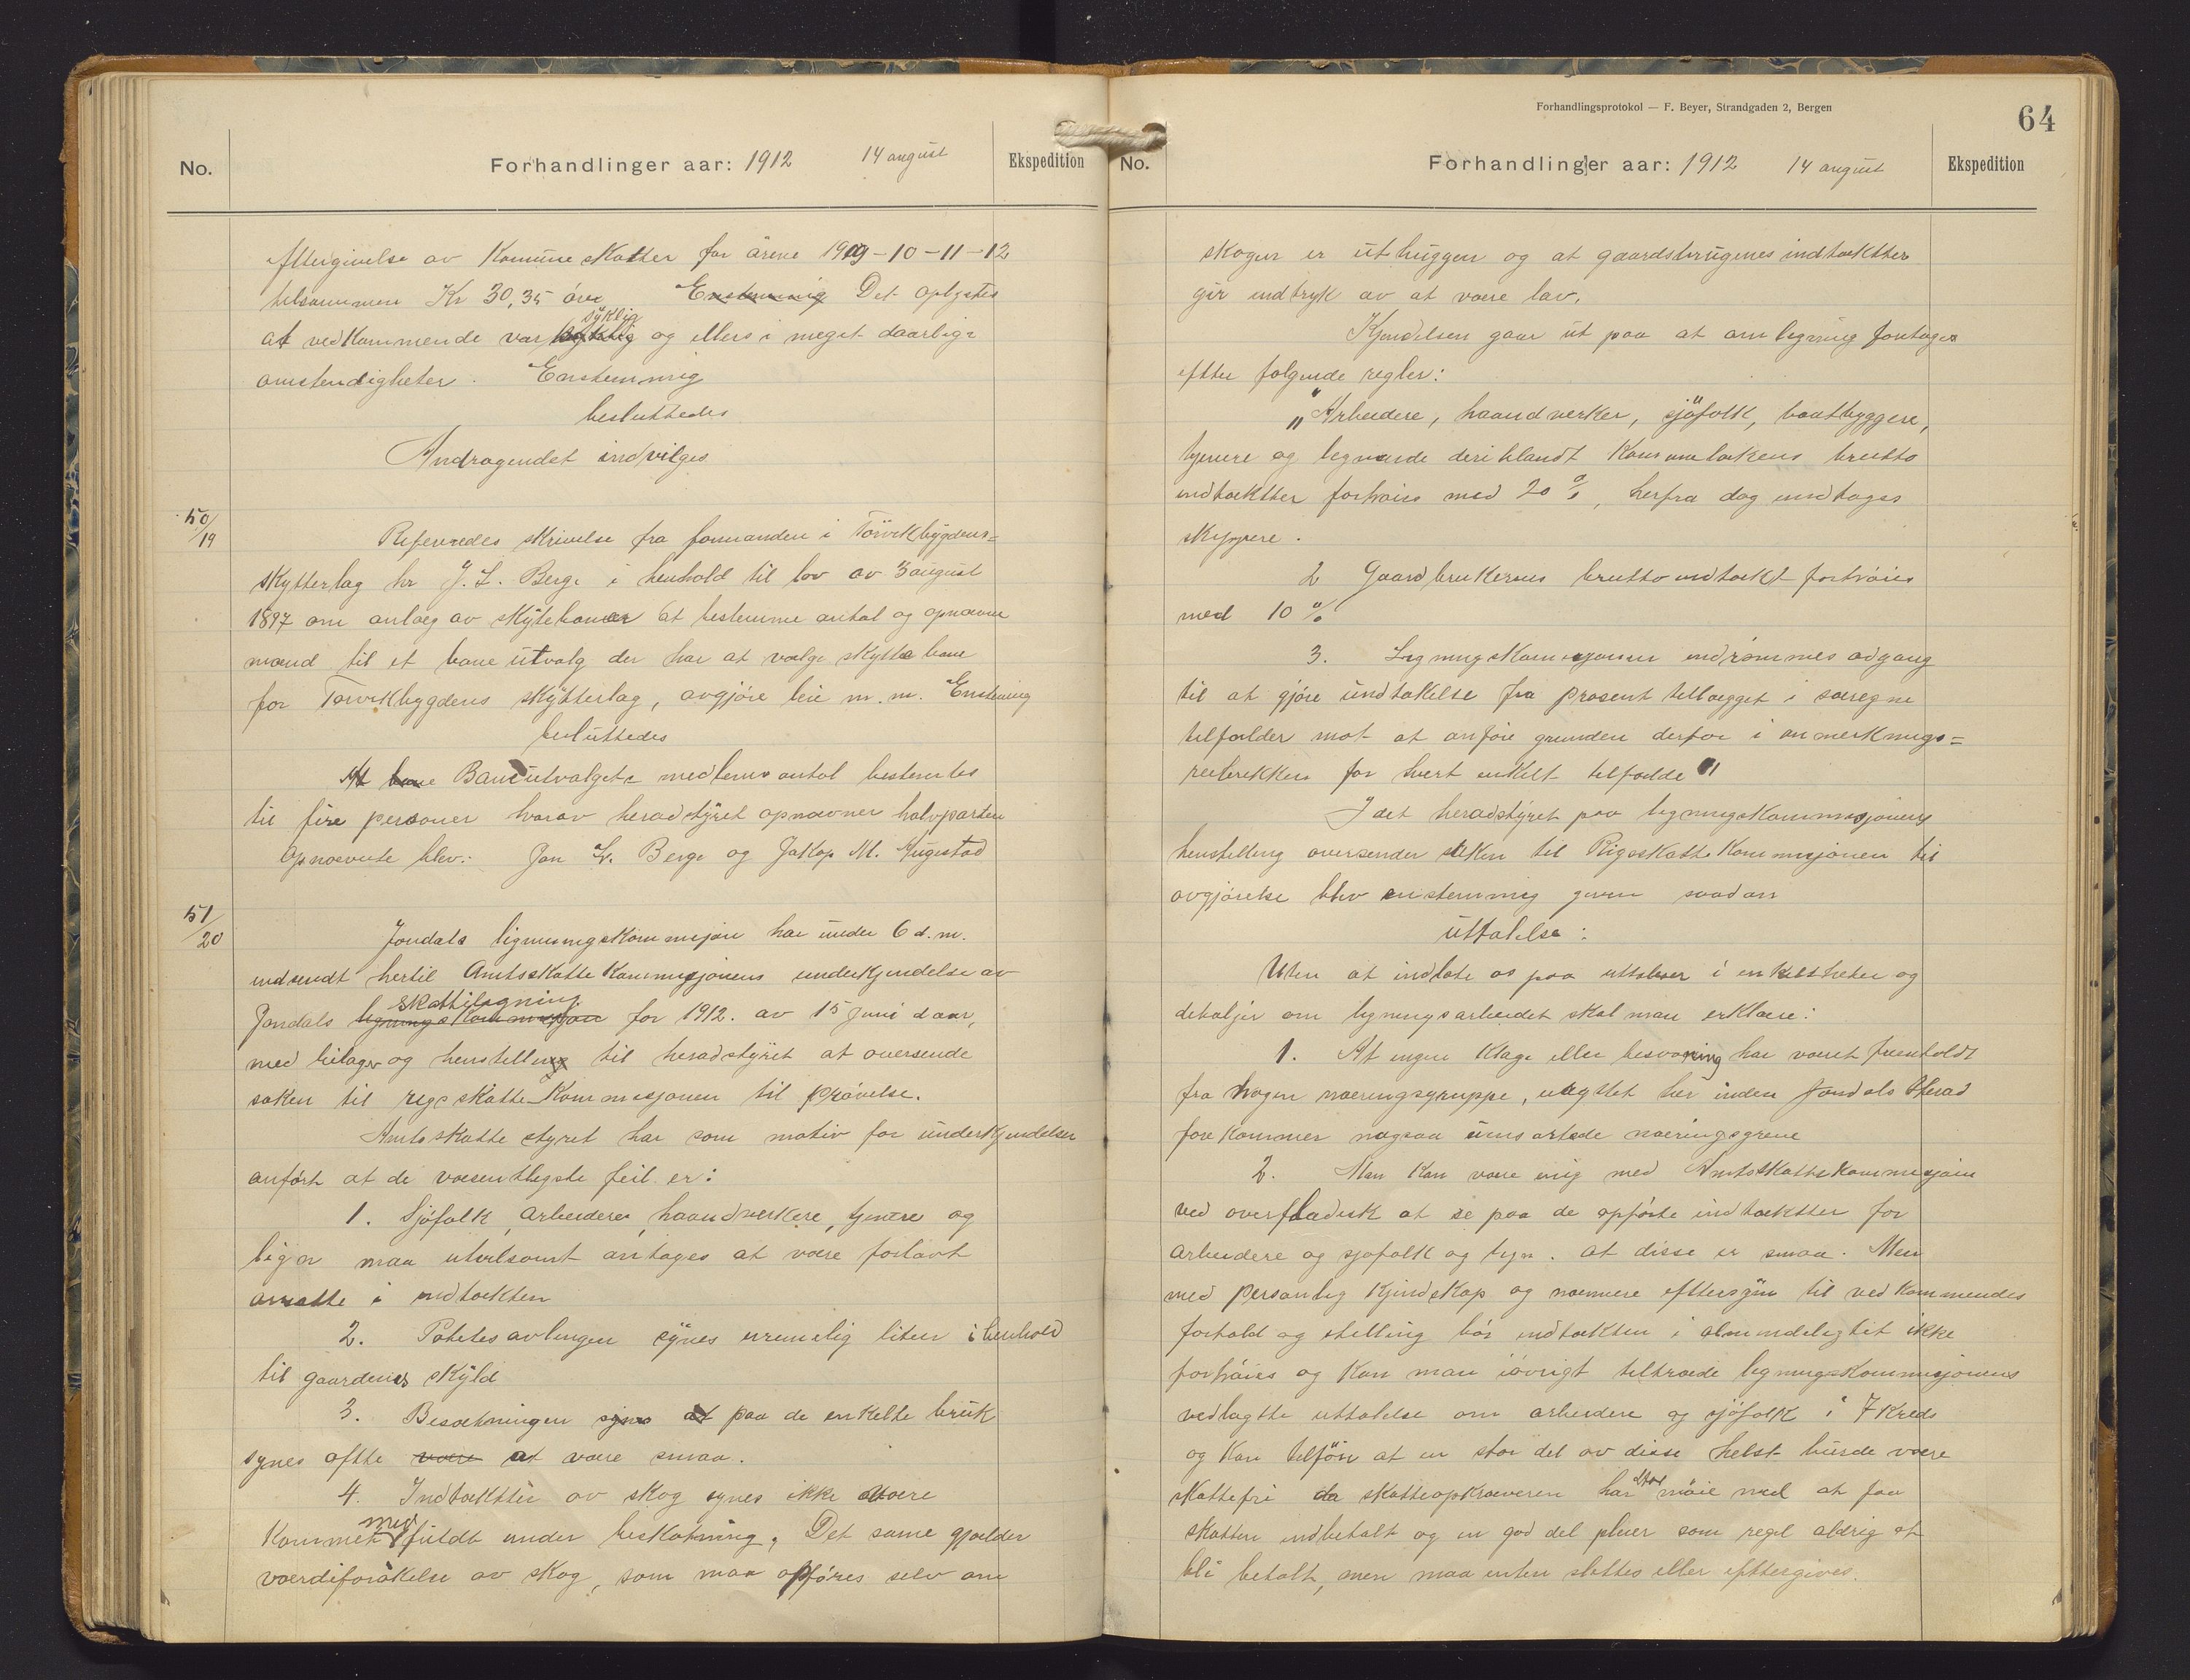 No.
Forhandlinger aar: 1912 14 august
Ekspedition
eftergivelse av Komuneskatter for årene 1909-10-11-12
tilsammen Kr 30,35 öre Enstemmig Det oplystes
at vedkommende var syklig og ellers i meget daarlige
omstendigheter. Enstemmig
besluttedes
Andragendet indvilges
50/19
Refereredes skrivelse fra formanden i Törvikbygdens-
skytterlag hr J. L. Berge i henhold til lov av 3 august
1897 om anlæg av skytebaner at bestemme antal og opnævne
mænd til et bane utvalg der har at vælge skytte bane
for Torvikbygdens skytterlag, avgjöre leie m.m. Enstemig
besluttedes
At bane Baneutvalgets medlems antal bestemtes
til fire personer hvorav heradstyret opnævner halvparten
Opnævnte blev: Jon L. Berge og Jakop M. Augestad
51/20
Jondals ligningskommisjon har under 6 d.m.
indsendt hertil Amtsskatte Kommisjonens underkjendelse av
Jondals ligningskommisjon skattiligning for 1912. av 15 Juni d aar,
med bilager og henstilling til heradstyret at oversende
saken til rigsskatte Kommisjonen til prövelse.
Amtsskatte styret har som motiv for underkjendelsen
anfört at de væsentligste feil er:
1. Sjöfolk, arbeidere, haandverkere, tjenere og
lign maa utvilsomt antages at være forlavt
ansatte i indtækten
2. Potetesavlingen synes urimelig liten i henhold
til gaardenes skyld
3. Besætningen synes at paa de enkelte bruk
synes ofte være at være smaa.
4. Indtækter av skog synes ikke være
Kommet med fuldt under beskatning. Det same gjælder
værdiforökelse av skog, som maa opföres selv om
Forhandlingsprotokol — F. Beyer, Strandgaden 2, Bergen
64
No.
Forhandlinger aar: 1912 14 august
Ekspedition
skogen er uthuggen og at gaardsbrugenes indtækter
gir indtryk av at være lav.
Kjendelsen gaar ut paa at om ligning foretages
efter følgende regler:
"Arbeidere, haandverker, sjöfolk, baatbyggere,
tjenere og lignende deriblandt Kommetækens brutto
indtækter forhöies med 20 %, herfra dog undtages
skippere.
2 Gaardbrukernes brutto indtækt forhöies
med 10 %
3. Ligningskommisjonen indrömmes adgang
til at gjöre undtakelse fra prosent tillægget i særegne
tilfælder mot at anföre grunden derfor i anmerknings-
rubrikken for hvert enkelt tilfælde"
I det heradstyret paa ligningskommisjonens
henstilling oversender saken til Rigsskatte Kommisjonen til
avgjörelse blev enstemmig given saadan
uttalelse:
Uten at indlate os paa uttalelser i enkeltheter og
detaljer om ligningsarbeidet skal man erklære:
1. At ingen Klage eller besværing har været fremholdt
fra nogen næringsgruppe, uagtet her inden Jondals Herad
forekommer nogsaa uensartede næringsgrene
2. Man kan være enig med Amtsskattekommisjon
ved overfladisk at se paa de opförte indtækter for
arbeidere og sjofolk og lign. at disse er smaa. Men
med personlig Kjendskap og nærmere eftersyn til vedkommendes
forhold og stilling bör indtækten i almindelighet ikke
forhöies og kan man iövrigt tiltræde ligningskommisjonens
vedlagte uttalelse om arbeidere og sjöfolk i 7 Kreds
og kan tilföie at en stor del av disse helst burde være
skattefri da skatteopkræveren har stor möie med at faa
skatten indbetalt og en god del pleier som regel aldrig at
bli betalt, men maa enten slettes eller eftergives.